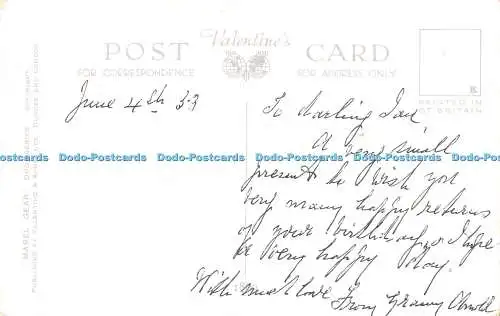 POST Valentine's CARD
FOR CORRESPONDENCE FOR ADDRESS ONLY
PRINTED IN
GT BRITAIN
K
June 4th 53
To darling Ian
A very small
present to wish you
very many happy returns
of your birthday & I hope
be very happy day.
With much love From Granny
Dodo-Postcards Dodo-Postcards Dodo-Postcards Dodo-Postcards Dodo-Postcards Dodo-Postcards
MAREL GEAR
PUBLISHED BY VALENTINE & SONS LTD. DUNDEE AND LONDON